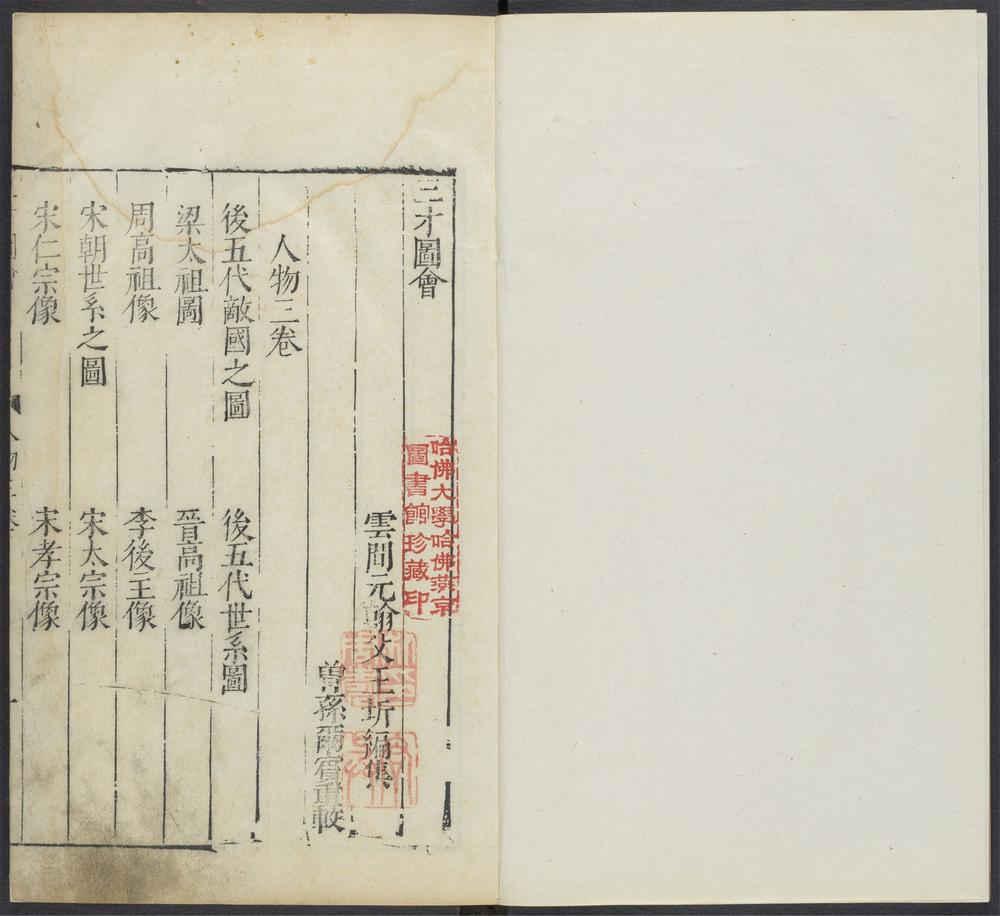 三才圖會
雲間元翰父王圻編集
曾孫爾賓重較
人物三卷
後五代敵國之圖
後五代世系圖
梁太祖圖
晉高祖像
周高祖像
李後主像
宋朝世系之圖
宋太宗像
宋仁宗像
宋孝宗像
哈佛大學哈佛燕京
圖書館珍藏印